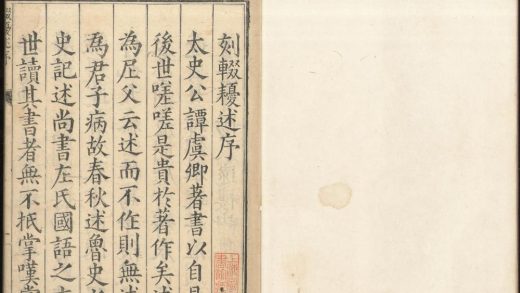 刻輟耰述序
太史公譚虞卿著書以自見
後世嗟嗟是貴於著作矣述
為尼父云述而不作則無述
為君子病故春秋述魯史
史記述尚書左氏國語之
世讀其書者無不抵掌嘆